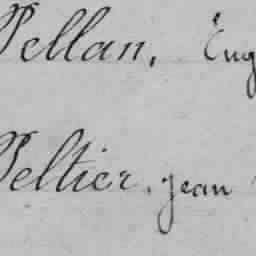 Pellan, Eug
Peltier, jean